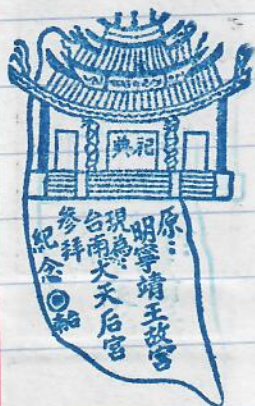 祀典
原：
明寧靖王故宮
現為：
台南大天后宮
參拜
紀念◎